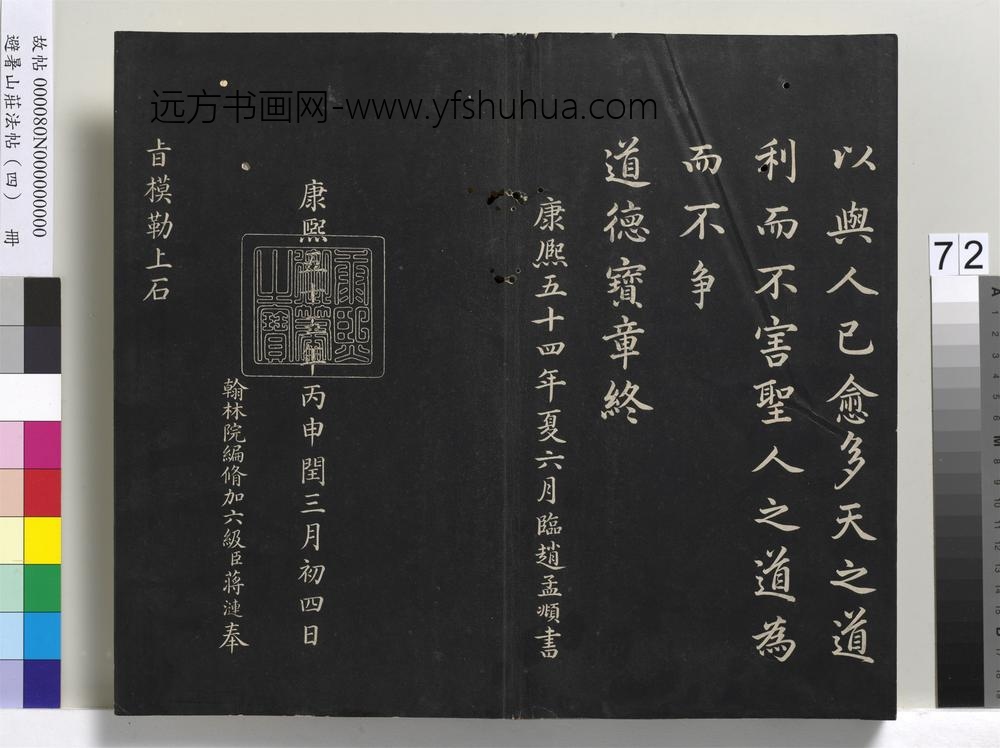 以與人已愈多天之道
利而不害聖人之道為
而不争
道德寶章終
康熙五十四年夏六月臨趙孟頫書
康熙五十五年丙申閏三月初四日
翰林院編脩加六級臣蔣漣奉
旨模勒上石
远方书画网-www.yfshuhua.com
故帖 000080N000000000
避暑山莊法帖（四） 冊
72